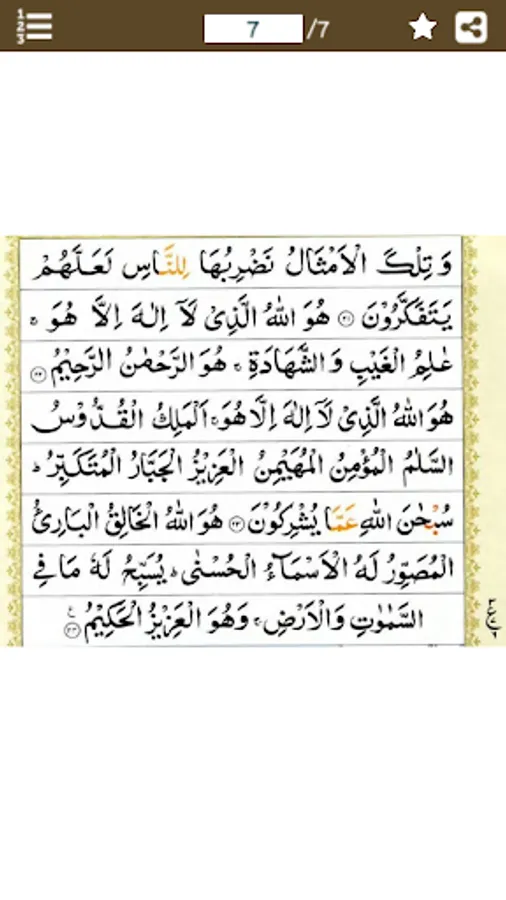 7 /7
وَتِلْكَ الْاَمْثَالُ نَضْرِبُهَا لِلنَّاسِ لَعَلَّهُمْ
يَتَفَكَّرُوْنَ ﴿۲۱﴾ هُوَ اللّٰهُ الَّذِىْ لَاۤ اِلٰهَ اِلَّا هُوَ ۚ
عٰلِمُ الْغَيْبِ وَالشَّهَادَةِ ۚ هُوَ الرَّحْمٰنُ الرَّحِيْمُ ﴿۲۲﴾
هُوَ اللّٰهُ الَّذِىْ لَاۤ اِلٰهَ اِلَّا هُوَ ۚ اَلْمَلِكُ الْقُدُّوْسُ
السَّلٰمُ الْمُؤْمِنُ الْمُهَيْمِنُ الْعَزِيْزُ الْجَبَّارُ الْمُتَكَبِّرُ ؕ
سُبْحٰنَ اللّٰهِ عَمَّا يُشْرِكُوْنَ ﴿۲۳﴾ هُوَ اللّٰهُ الْخَالِقُ الْبَارِئُ
الْمُصَوِّرُ لَهُ الْاَسْمَآءُ الْحُسْنٰى ؕ يُسَبِّحُ لَهٗ مَا فِى
السَّمٰوٰتِ وَالْاَرْضِ ۚ وَهُوَ الْعَزِيْزُ الْحَكِيْمُ ﴿۲۴﴾